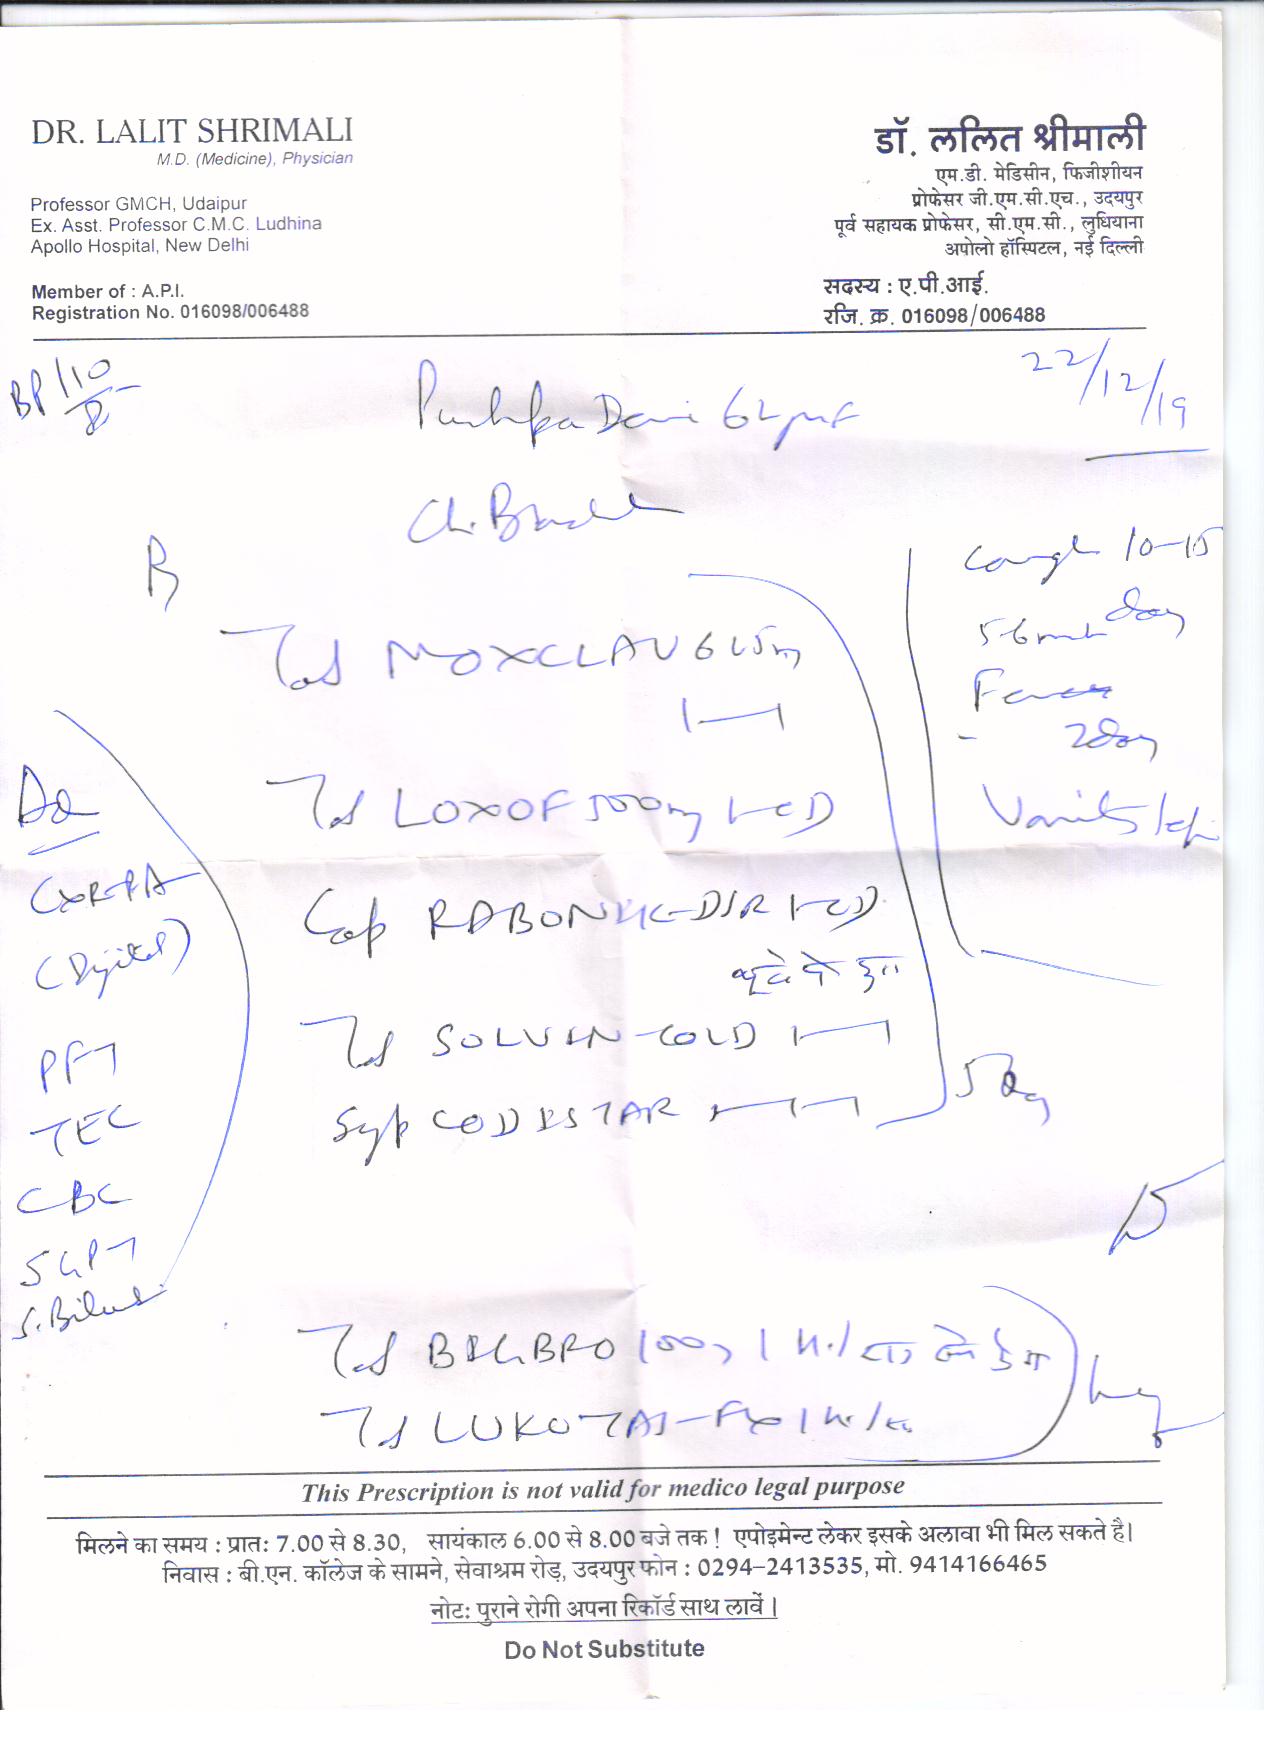 DR. LALIT SHRIMALI
M.D. (Medicine), Physician
Professor GMCH, Udaipur
Ex. Asst. Professor C.M.C. Ludhina
Apollo Hospital, New Delhi
Member of : A.P.I.
Registration No. 016098/006488
डॉ. ललित श्रीमाली
एम.डी. मेडिसीन, फिजीशीयन
प्रोफेसर जी.एम.सी.एच., उदयपुर
पूर्व सहायक प्रोफेसर, सी.एम.सी., लुधियाना
अपोलो हॉस्पिटल, नई दिल्ली
सदस्य : ए.पी.आई.
रजि. क्र. 016098/006488
BP 110/8
22/12/19
Pushpa Devi
Cough 10-15
day
2 day
Tab MOXCLAV 625 mg
Tab LOXOF 500mg 1-OD
Cap RABONIK-DSR 1-OD
Tab SOLVIN-COLD
Syp CODISTAR
5 day
CXR-PA
(Digital)
PFT
TEC
CBC
SGPT
Tab BIGBRO 100mg
Tab LUKOTAS-FX
This Prescription is not valid for medico legal purpose
मिलने का समय : प्रात: 7.00 से 8.30, सायंकाल 6.00 से 8.00 बजे तक ! एपोइमेन्ट लेकर इसके अलावा भी मिल सकते है।
निवास : बी.एन. कॉलेज के सामने, सेवाश्रम रोड़, उदयपुर फोन : 0294-2413535, मो. 9414166465
नोट: पुराने रोगी अपना रिकॉर्ड साथ लावें ।
Do Not Substitute